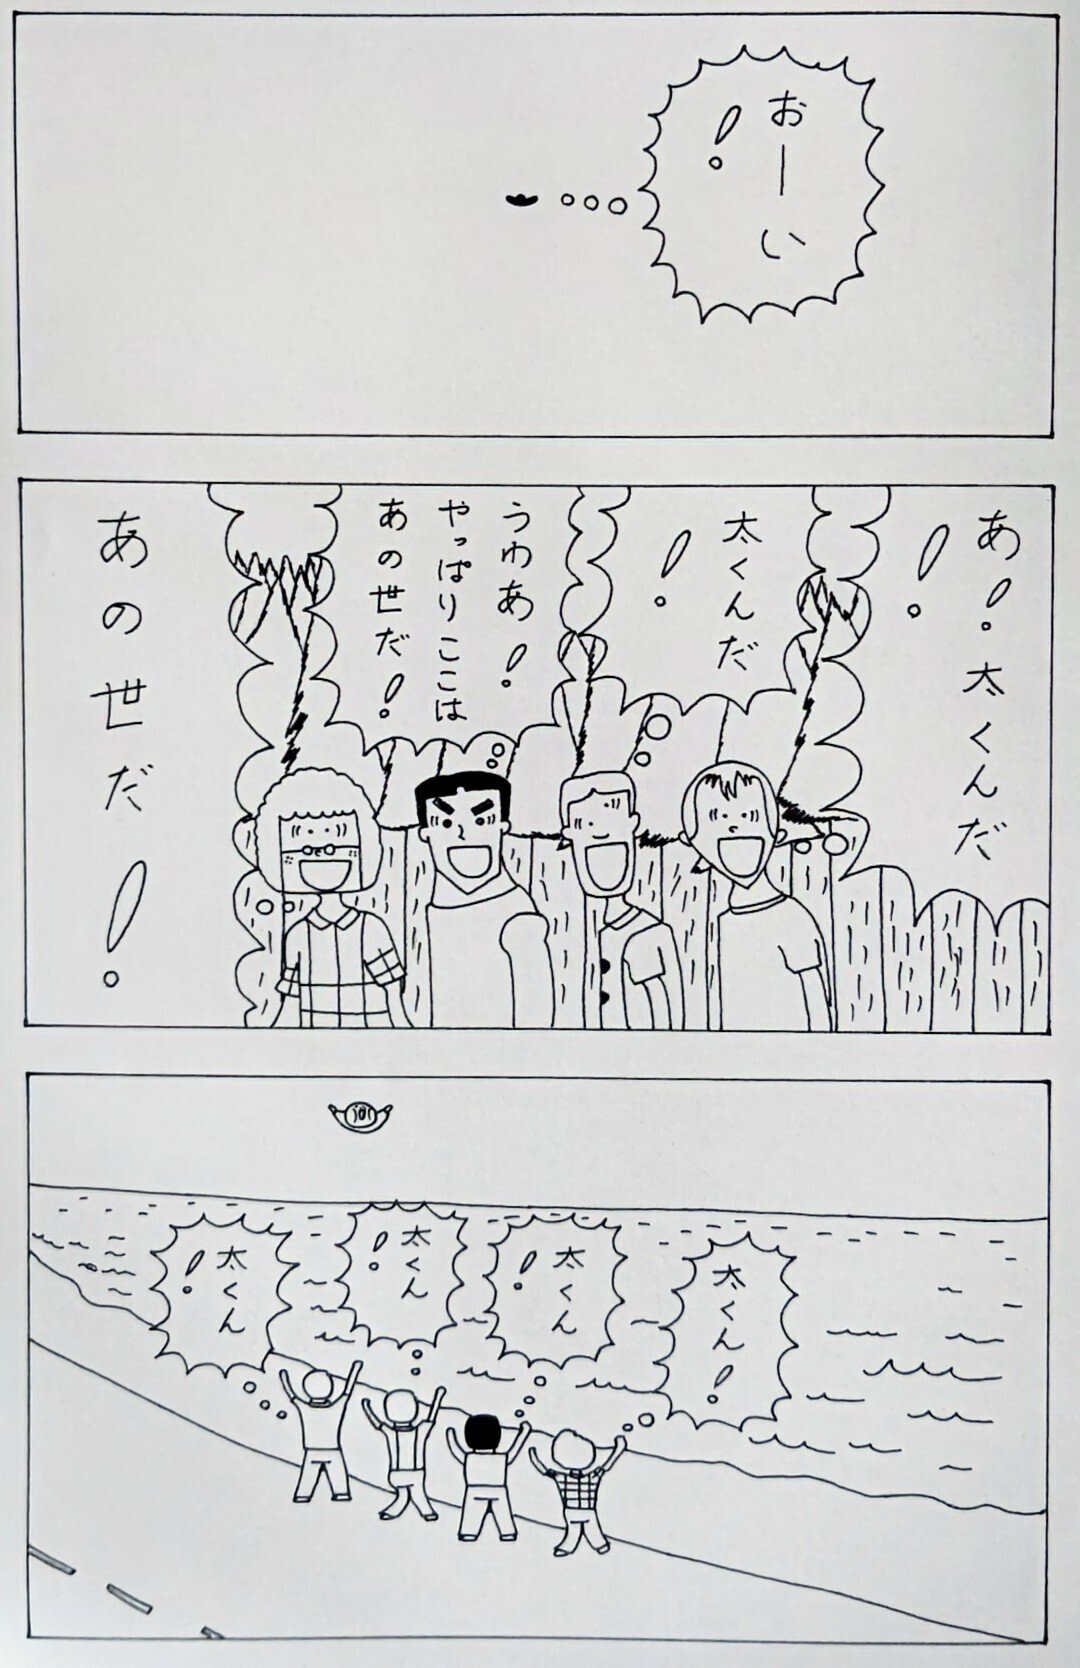 おーい
！
あ！太くんだ
！
太くんだ
！
うわあ！
やっぱりここは
あの世だ！
あの世だ！
太くん！
太くん
！
太くん
！
太くん
！